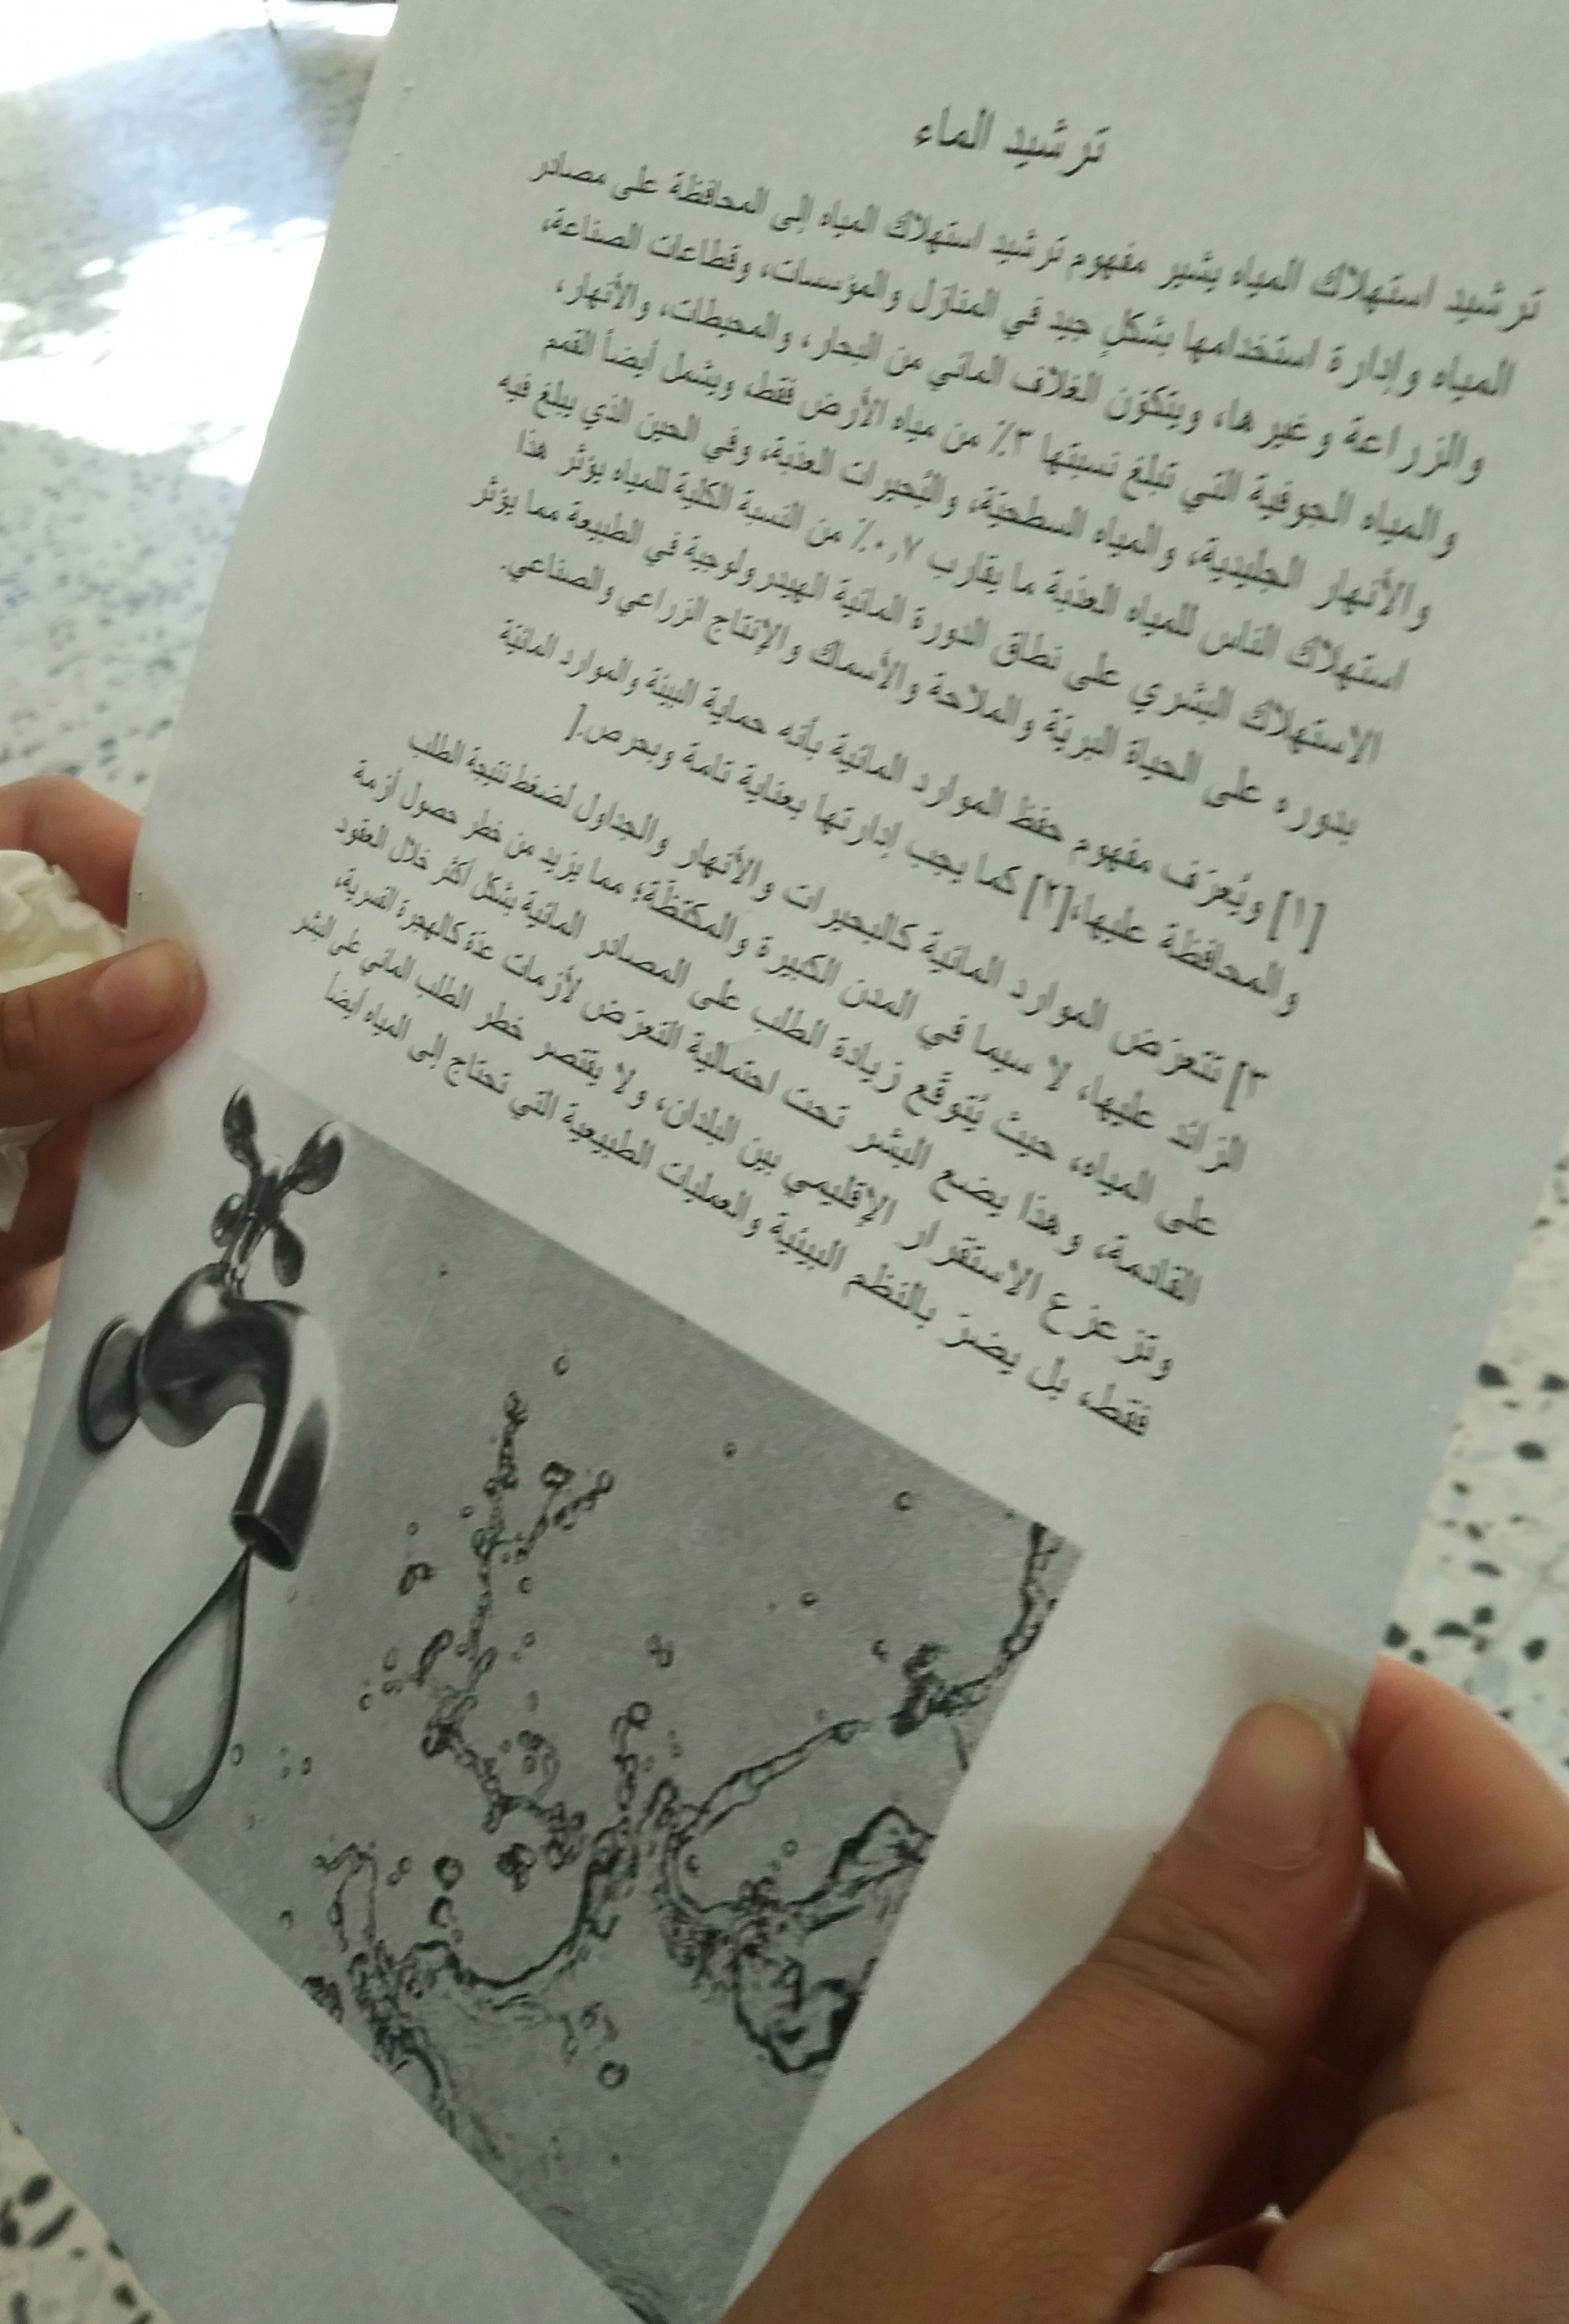 ترشيد الماء
ترشيد استهلاك المياه يشير مفهوم ترشيد استهلاك المياه إلى المحافظة على مصادر
المياه وإدارة استخدامها بشكلٍ جيد في المنازل والمؤسسات، وقطاعات الصناعة،
والزراعة وغيرها، ويتكوّن الغلاف المائي من البحار، والمحيطات، والأنهار،
والمياه الجوفية التي تبلغ نسبتها ٣٪ من مياه الأرض فقط، ويشمل أيضاً القمم
والأنهار الجليدية، والمياه السطحيّة، والبُحيرات العذبة، وفي الحين الذي يبلغ فيه
استهلاك الناس للمياه العذبة ما يقارب ٠,٧٪ من النسبة الكلية للمياه يؤثر هذا
الاستهلاك البشري على نطاق الدورة المائية الهيدرولوجية في الطبيعة مما يؤثر
بدوره على الحياة البريّة والملاحة والأسماك والإنتاج الزراعي والصناعي.
[١] ويُعرّف مفهوم حفظ الموارد المائية بأنه حماية البيئة والموارد المائيّة
والمحافظة عليها،[٢] كما يجب إدارتها بعناية تامة وبحرص.[
٣] تتعرّض الموارد المائية كالبحيرات والأنهار والجداول لضغط نتيجة الطلب
الزائد عليها، لا سيما في المدن الكبيرة والمكتظّة؛ مما يزيد من خطر حصول أزمة
على المياه، حيثُ يُتوقّع زيادة الطلب على المصادر المائية بشكل أكثر خلال العقود
القادمة، وهذا يضع البشر تحت احتمالية التعرّض لأزمات عدّة كالهجرة القسرية،
وتزعزع الاستقرار الإقليمي بين البلدان، ولا يقتصر خطر الطلب المائي على البشر
فقط، بل يضرّ بالنظم البيئية والعمليات الطبيعية التي تحتاج إلى المياه أيضاً